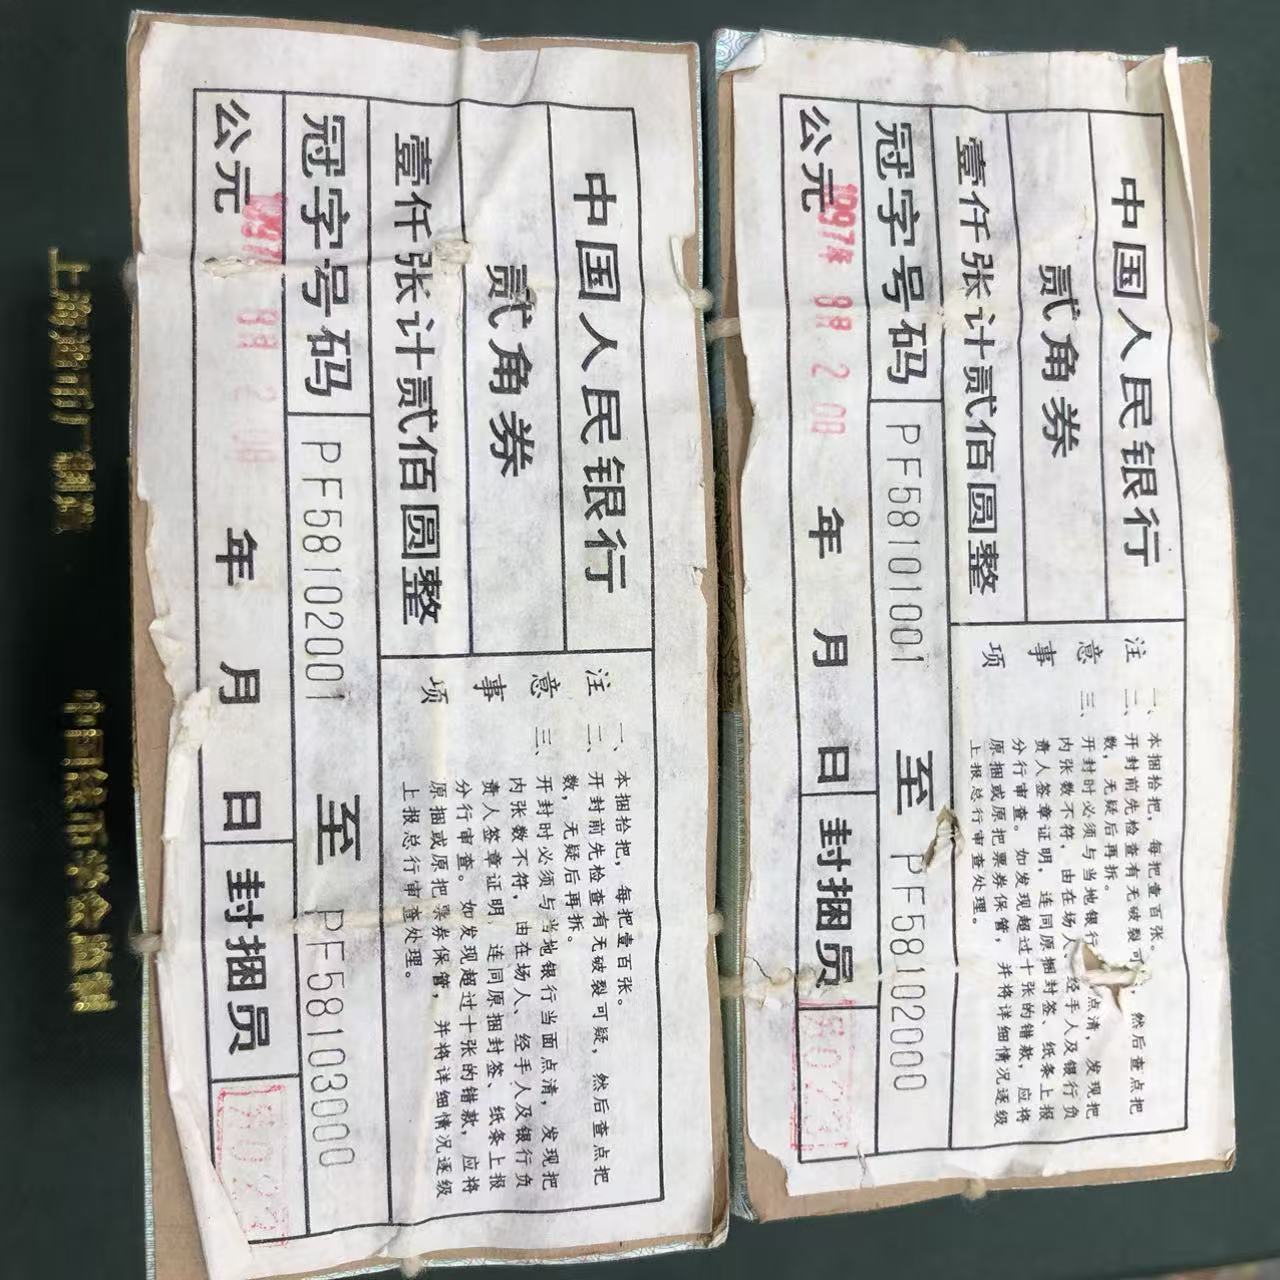 中国人民银行
贰角券
壹仟张计贰佰圆整
冠字号码 PF58102001 至 PF58103000
公元 1997年 8月 2 0日 年 月 日 封捆员
注意事项
一、本捆拾把，每把壹百张。
二、开封前先检查有无破裂可疑，然后查点把
数，无疑后再拆。
三、开封时必须与当地银行当面点清，发现把
内张数不符，由在场人、经手人及银行负
责人签章证明，连同原捆封签、纸条上报
分行审查。如发现超过十张的错款，应将
原捆或原把票券保管，并将详细情况逐级
上报总行审查处理。
中国人民银行
贰角券
壹仟张计贰佰圆整
冠字号码 PF58101001 至 PF58102000
公元 1997年 8月 2 0日 年 月 日 封捆员
注意事项
一、本捆拾把，每把壹百张。
二、开封前先检查有无破裂可，然后查点把
数，无疑后再拆。
三、开封时必须与当地银行点清，发现把
内张数不符，由在场人经手人及银行负
责人签章证明，连同原捆封签、纸条上报
分行审查。如发现超过十张的错款，应将
原捆或原把票券保管，并将详细情况逐级
上报总行审查处理。
上海造币厂
中国钱币学会监制